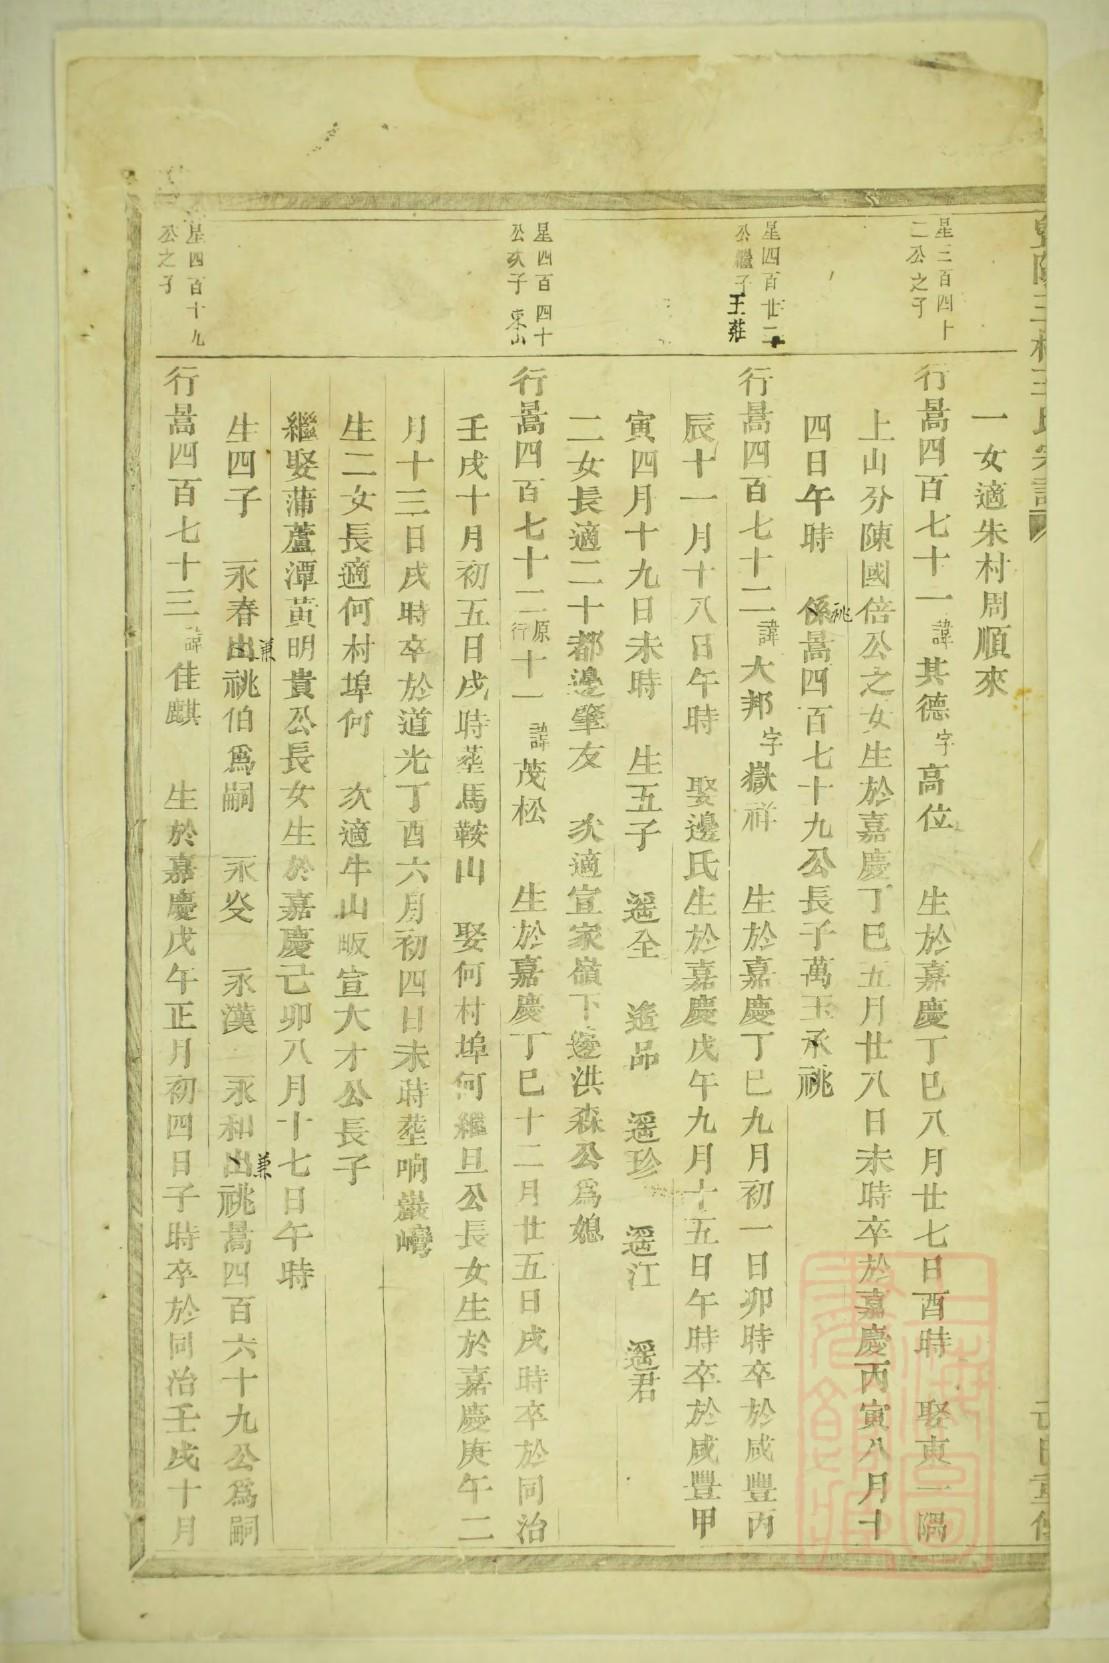 一女適朱村周順來
星三百四十
二公之子
行暠四百七十一諱其德字高位 生於嘉慶丁巳八月廿七日酉時 娶東一隅
上山夰陳國倍公之女生於嘉慶丁巳五月廿八日未時卒於嘉慶丙寅八月十
四日午時 係祧暠四百七十九公長子萬玉承祧
星四百廿二
公繼子王莊
行暠四百七十二諱大邦字嶽祥 生於嘉慶丁巳九月初一日卯時卒於咸豐丙
辰十一月十八日午時 娶邊氏生於嘉慶戊午九月十五日午時卒於咸豐甲
寅四月十九日未時 生五子 遥全 遥品 遥珍 遥江 遥君
二女長適二十都邊肇友 次適宣家嶺下邊洪森公爲媳
星四百四十
公次子東山
行暠四百七十二原行十一諱茂松 生於嘉慶丁巳十二月廿五日戌時卒於同治
壬戌十月初五日戌時塟馬鞍山 娶何村埠何繼旦公長女生於嘉慶庚午二
月十三日戌時卒於道光丁酉六月初四日未時塟响巖灣
生二女長適何村埠何 次適牛山畈宣大才公長子
繼娶蒲蘆潭黃明貴公長女生於嘉慶己卯八月十七日午時
生四子 永春出兼祧伯爲嗣 永炎 永漢 永和出兼祧暠四百六十九公爲嗣
星四百十九
公之子
行暠四百七十三諱佳麒 生於嘉慶戊午正月初四日子時卒於同治壬戌十月